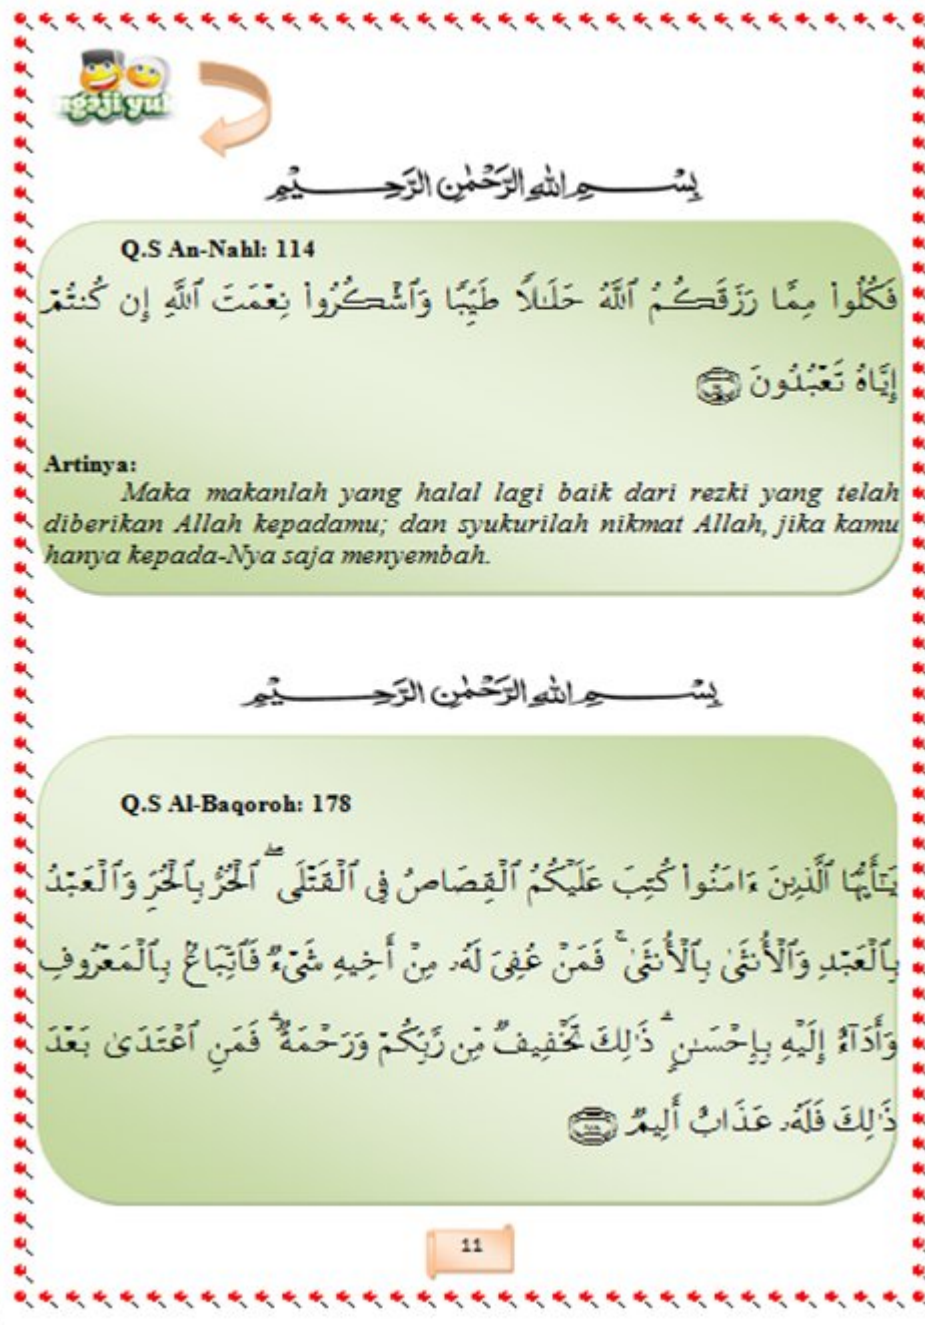 ngaji yuk
بِسْــــــمِ اللهِ الرَّحْمٰنِ الرَّحِــــــيْمِ
Q.S An-Nahl: 114
فَكُلُوا۟ مِمَّا رَزَقَكُمُ ٱللَّهُ حَلَـٰلًا طَيِّبًا وَٱشْكُرُوا۟ نِعْمَتَ ٱللَّهِ إِن كُنتُمْ
إِيَّاهُ تَعْبُدُونَ ۝١١٤
Artinya:
Maka makanlah yang halal lagi baik dari rezki yang telah
diberikan Allah kepadamu; dan syukurilah nikmat Allah, jika kamu
hanya kepada-Nya saja menyembah.
بِسْــــــمِ اللهِ الرَّحْمٰنِ الرَّحِــــــيْمِ
Q.S Al-Baqoroh: 178
يَـٰٓأَيُّهَا ٱلَّذِينَ ءَامَنُوا۟ كُتِبَ عَلَيْكُمُ ٱلْقِصَاصُ فِى ٱلْقَتْلَى ۖ ٱلْحُرُّ بِٱلْحُرِّ وَٱلْعَبْدُ
بِٱلْعَبْدِ وَٱلْأُنثَىٰ بِٱلْأُنثَىٰ ۚ فَمَنْ عُفِىَ لَهُۥ مِنْ أَخِيهِ شَىْءٌ فَٱتِّبَاعٌۢ بِٱلْمَعْرُوفِ
وَأَدَآءٌ إِلَيْهِ بِإِحْسَـٰنٍ ۗ ذَٰلِكَ تَخْفِيفٌ مِّن رَّبِّكُمْ وَرَحْمَةٌ ۗ فَمَنِ ٱعْتَدَىٰ بَعْدَ
ذَٰلِكَ فَلَهُۥ عَذَابٌ أَلِيمٌ ۝١٧٨
11